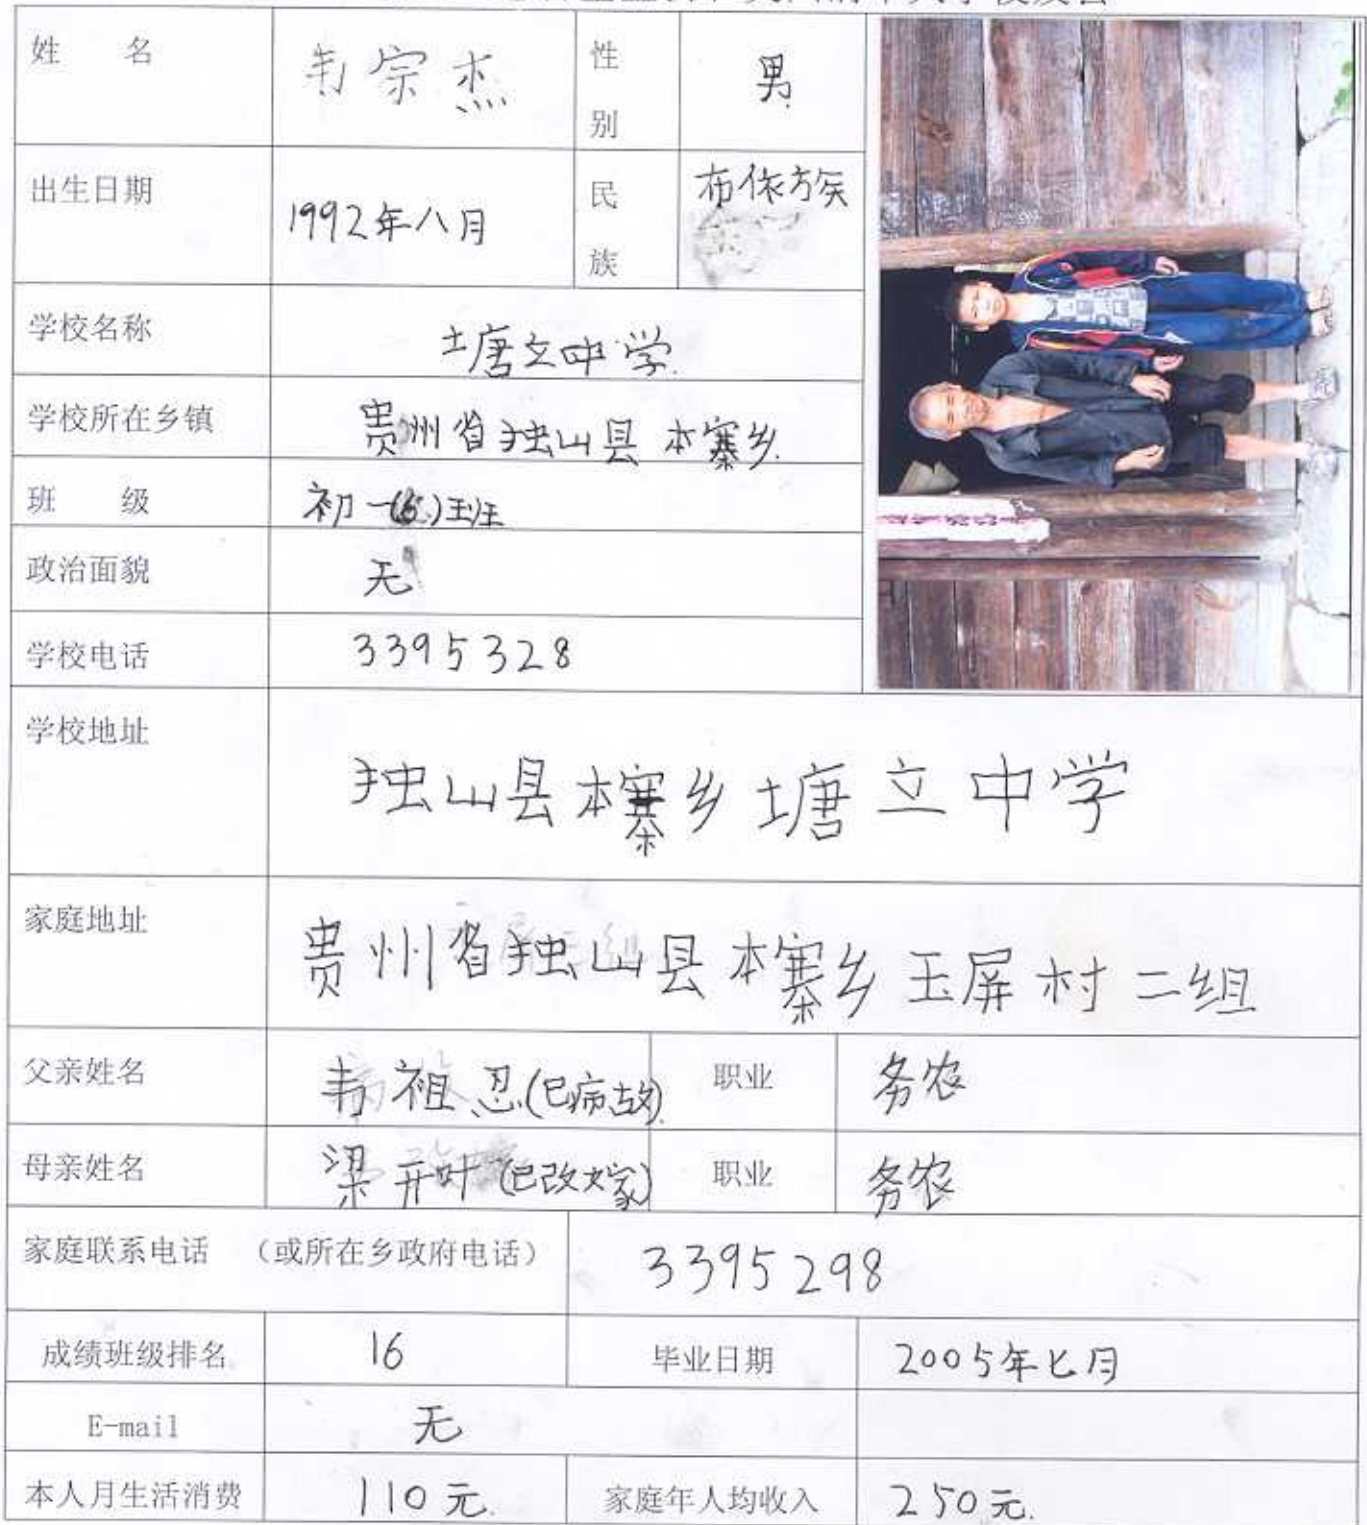 姓 名 韦宗杰 性别 男
出生日期 1992年八月 民族 布依族
学校名称 塘立中学
学校所在乡镇 贵州省独山县本寨乡
班 级 初一(6)班
政治面貌 无
学校电话 3395328
学校地址 独山县本寨乡塘立中学
家庭地址 贵州省独山县本寨乡玉屏村二组
父亲姓名 韦祖忍(已病故) 职业 务农
母亲姓名 梁开叶(已改嫁) 职业 务农
家庭联系电话 (或所在乡政府电话) 3395298
成绩班级排名 16 毕业日期 2005年七月
E-mail 无
本人月生活消费 110元. 家庭年人均收入 250元.